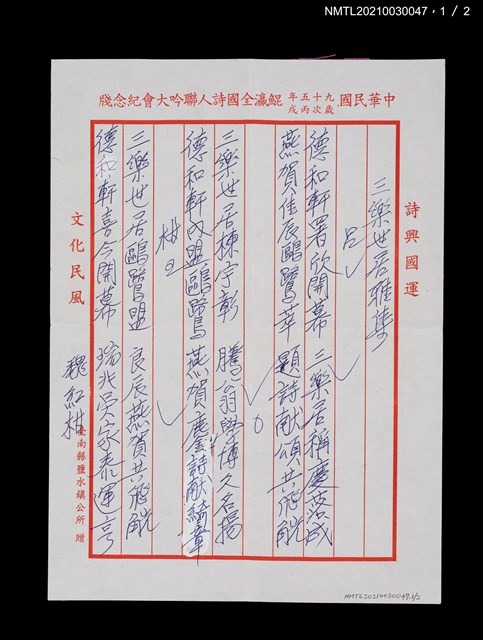 NMTL20210030047，1／2
中華民國九十五年歲次丙戌鯤瀛全國詩人聯吟大會紀念牋
詩興國運
三樂世居雅集
呂
德和軒署欣開幕 三樂居稱慶落成
燕賀佳辰鷗鷺萃 題詩献頌共飛觥
三樂世居棟宇彰 騰翁學博久名揚
德和軒啟盟鷗鷺 燕賀慶詩献綺章
柑
三樂世居鷗鷺盟 良辰燕賀共飛觥
德和軒喜今開幕 瑞兆吳家泰運亨
魏紅柑
文化民風
臺南縣鹽水鎮公所 贈
NMTL20210030047.1/2